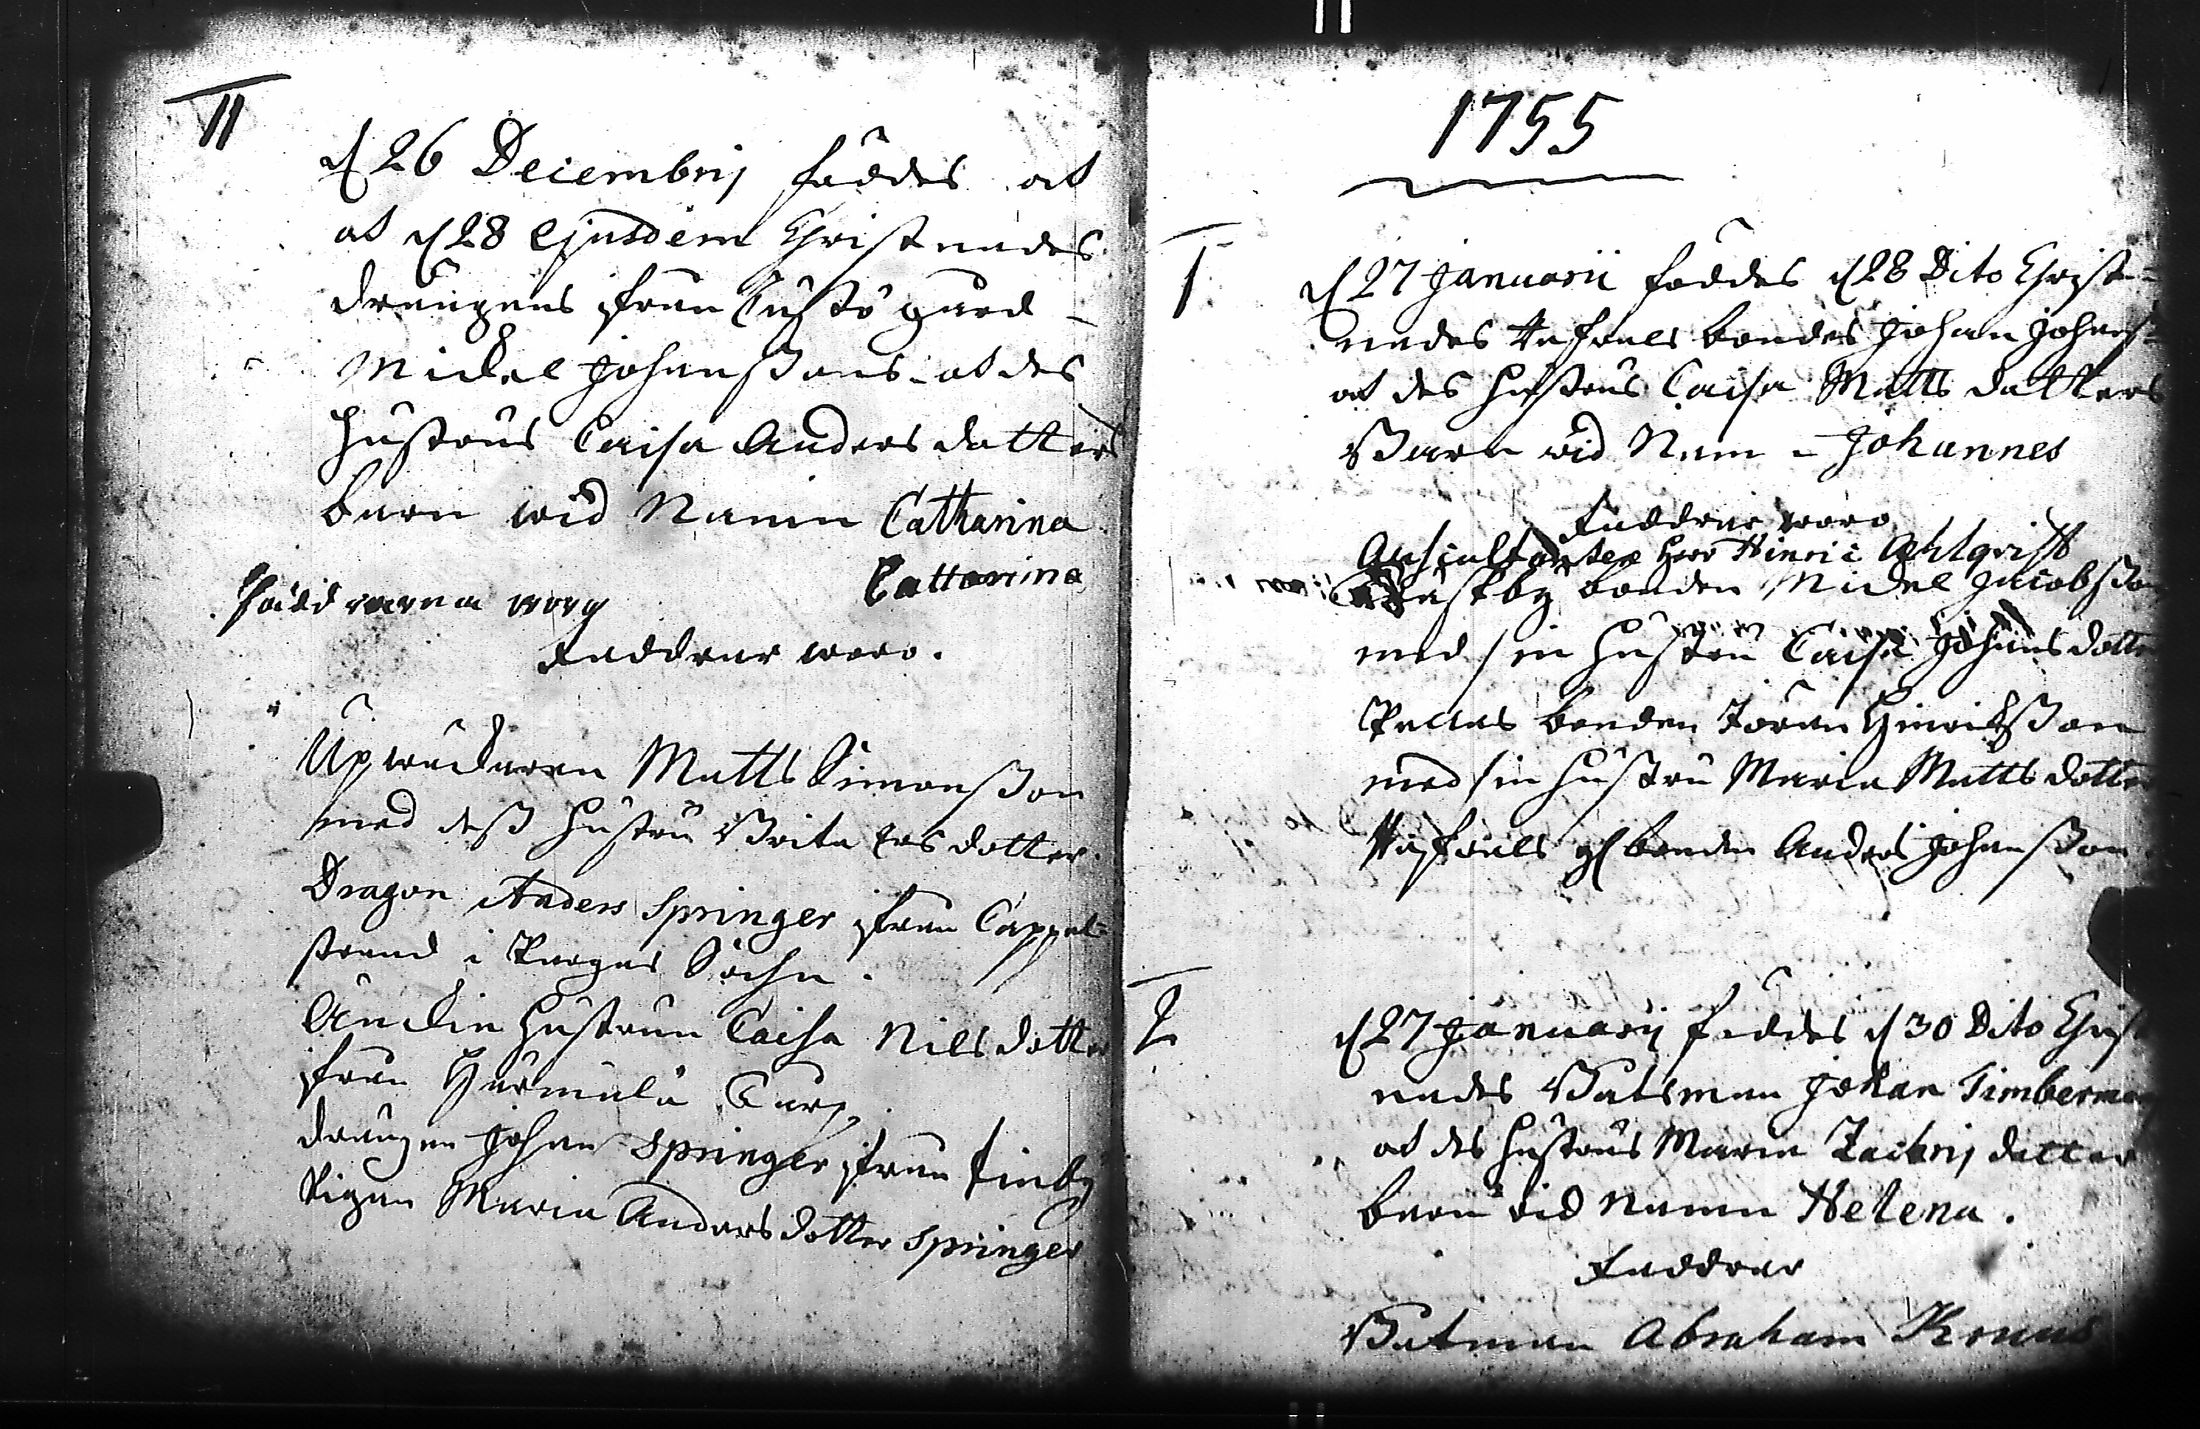 11
d 26 Decembrij föddes ok
ok d 28 ejusdem Christnades
drängens ifrån Custö gård
Mickel Johanssons ok des
hustrus Caisa Andersdotters
barn wid Namn Catharina
Cattarina
faddrarna woro
Faddrar woro.
Upwachtaren Matts Simonsson
med dess hustru Brita Ersdotter.
Dragon Anders Springer ifrån Cappel=
strand i Pargas Sochn.
Änckin hustrun Caisa Nilsdotter
ifrån Torp
drängen Johan Springer ifrån Finby
Pigan Maria Andersdotter Springer
1755
1
d 27 Januarii föddes d 28 Dito Christ=
nades bondes Johan Johans
ok des hustrus Caisa Matts dotters
Barn wid Namn - Johannes
Faddrar woro
Auscultanten Herr Hinric Ahlqvist
bonden Mickel Jacobsson
med sin hustru Caisa Johansdotter
bonden Jöran Hinricksson
med sin hustru Maria Mattsdotter
bonden Anders Johansson
2
d 27 Januarij föddes d 30 Dito Christ
nades Båtsman Johan Timberman
ok des hustrus Maria Zachrij dotter
barn wid Namn Helena.
Faddrar
Båtsman Abraham Knuus